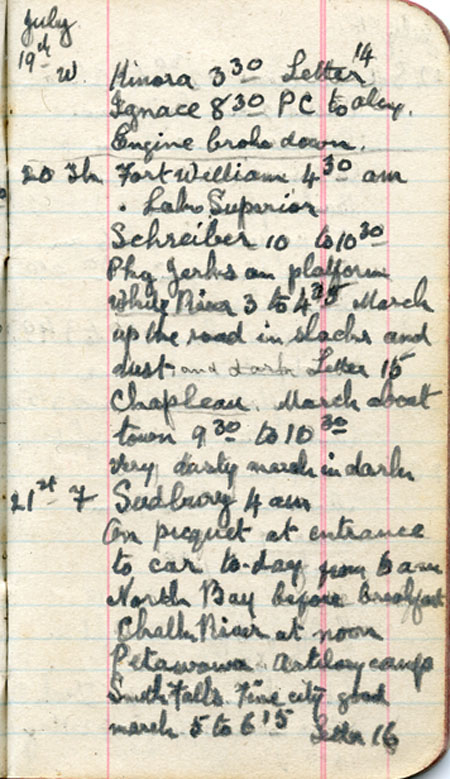 July
19th W. Kinora 3 30 Letter 14
Ignace 8 30 PC to alex.
Engine broke down.
20 Th Fort William 4 30 am
. Lake Superior
Schreiber 10 to 10 30
Phy Jerks on platform
White River 3 to 4 25 March
up the road in slacks and
dust and dark Letter 15
Chapleau. March about
town 9 30 to 10 30
very dusty march in dark
21st F Sudbury 4 am
On picquet at entrance
to car to-day from 6 am
North Bay before breakfast
Chalk River at noon
Petawawa artilery camp
Smith Falls. Fine city good
march 5 to 6 15 Letter 16